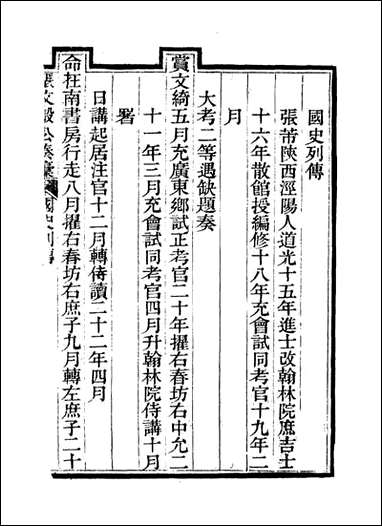 國史列傳
張芾陝西涇陽人道光十五年進士改翰林院庶吉士
十六年散館授編修十八年充會試同考官十九年二
月
大考二等遇缺題奏
賞文綺五月充廣東鄉試正考官二十年擢右春坊右中允二
十一年三月充會試同考官四月升翰林院侍講十月
署
日講起居注官十二月轉侍讀二十二年四月
命在南書房行走八月擢右春坊右庶子九月轉左庶子二十
張文毅公奏稾 國史列傳